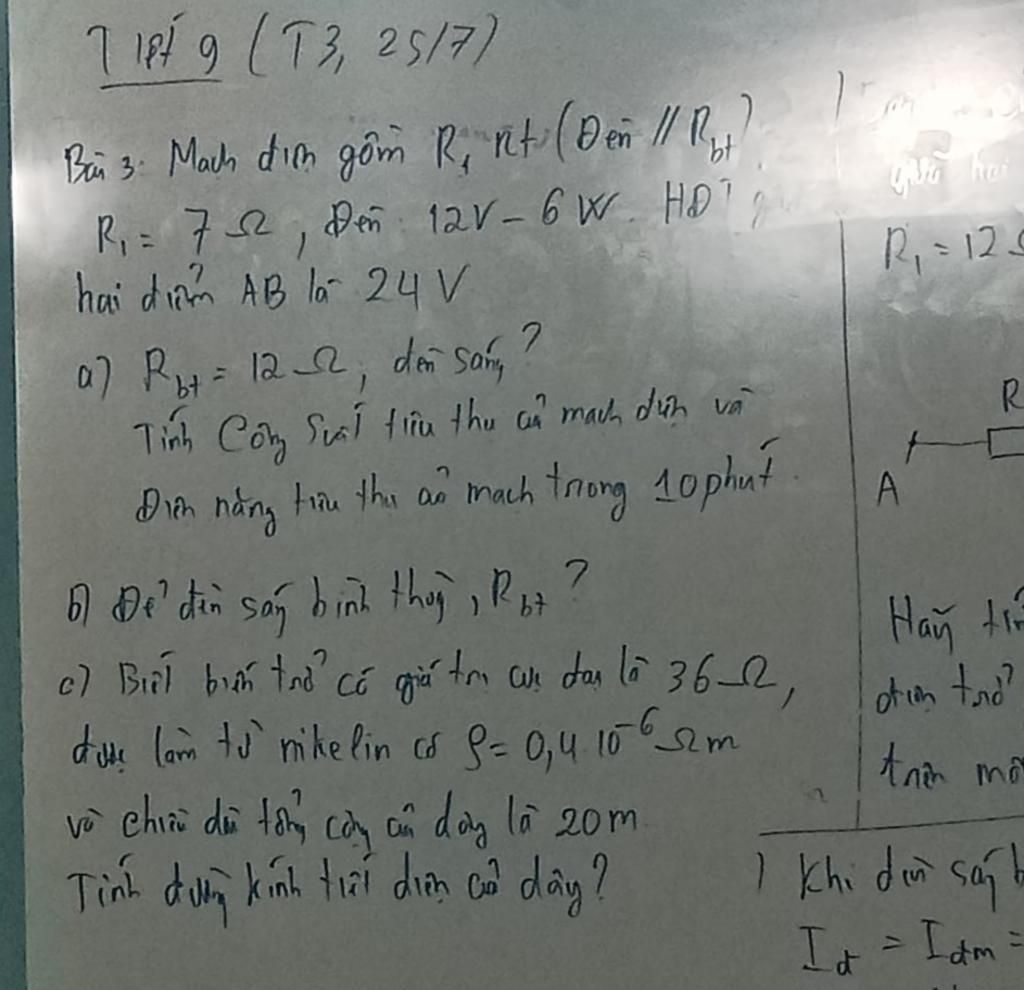 Tiết 9 (T3, 25/7)
Bài 3: Mạch điện gồm R₁ nt (Đèn // R_bt).
R₁ = 7 Ω, Đèn 12V - 6 W. HĐT
hai điểm AB là 24 V
a) R_bt = 12 Ω, đèn sáng?
Tính Công suất tiêu thụ của mạch điện và
Điện năng tiêu thụ của mạch trong 10 phút.
b) Để đèn sáng bình thường, R_bt?
c) Biết biến trở có giá trị cực đại là 36 Ω,
được làm từ nikelin có ρ = 0,4 10⁻⁶ Ωm
và chiều dài tổng cộng của dây là 20m
Tính đường kính tiết diện của dây?
giữa hai
R₁ = 12 Ω
R
A
Hãy
điện trở
trên
Khi đèn sáng b
I_đ = I_đm =